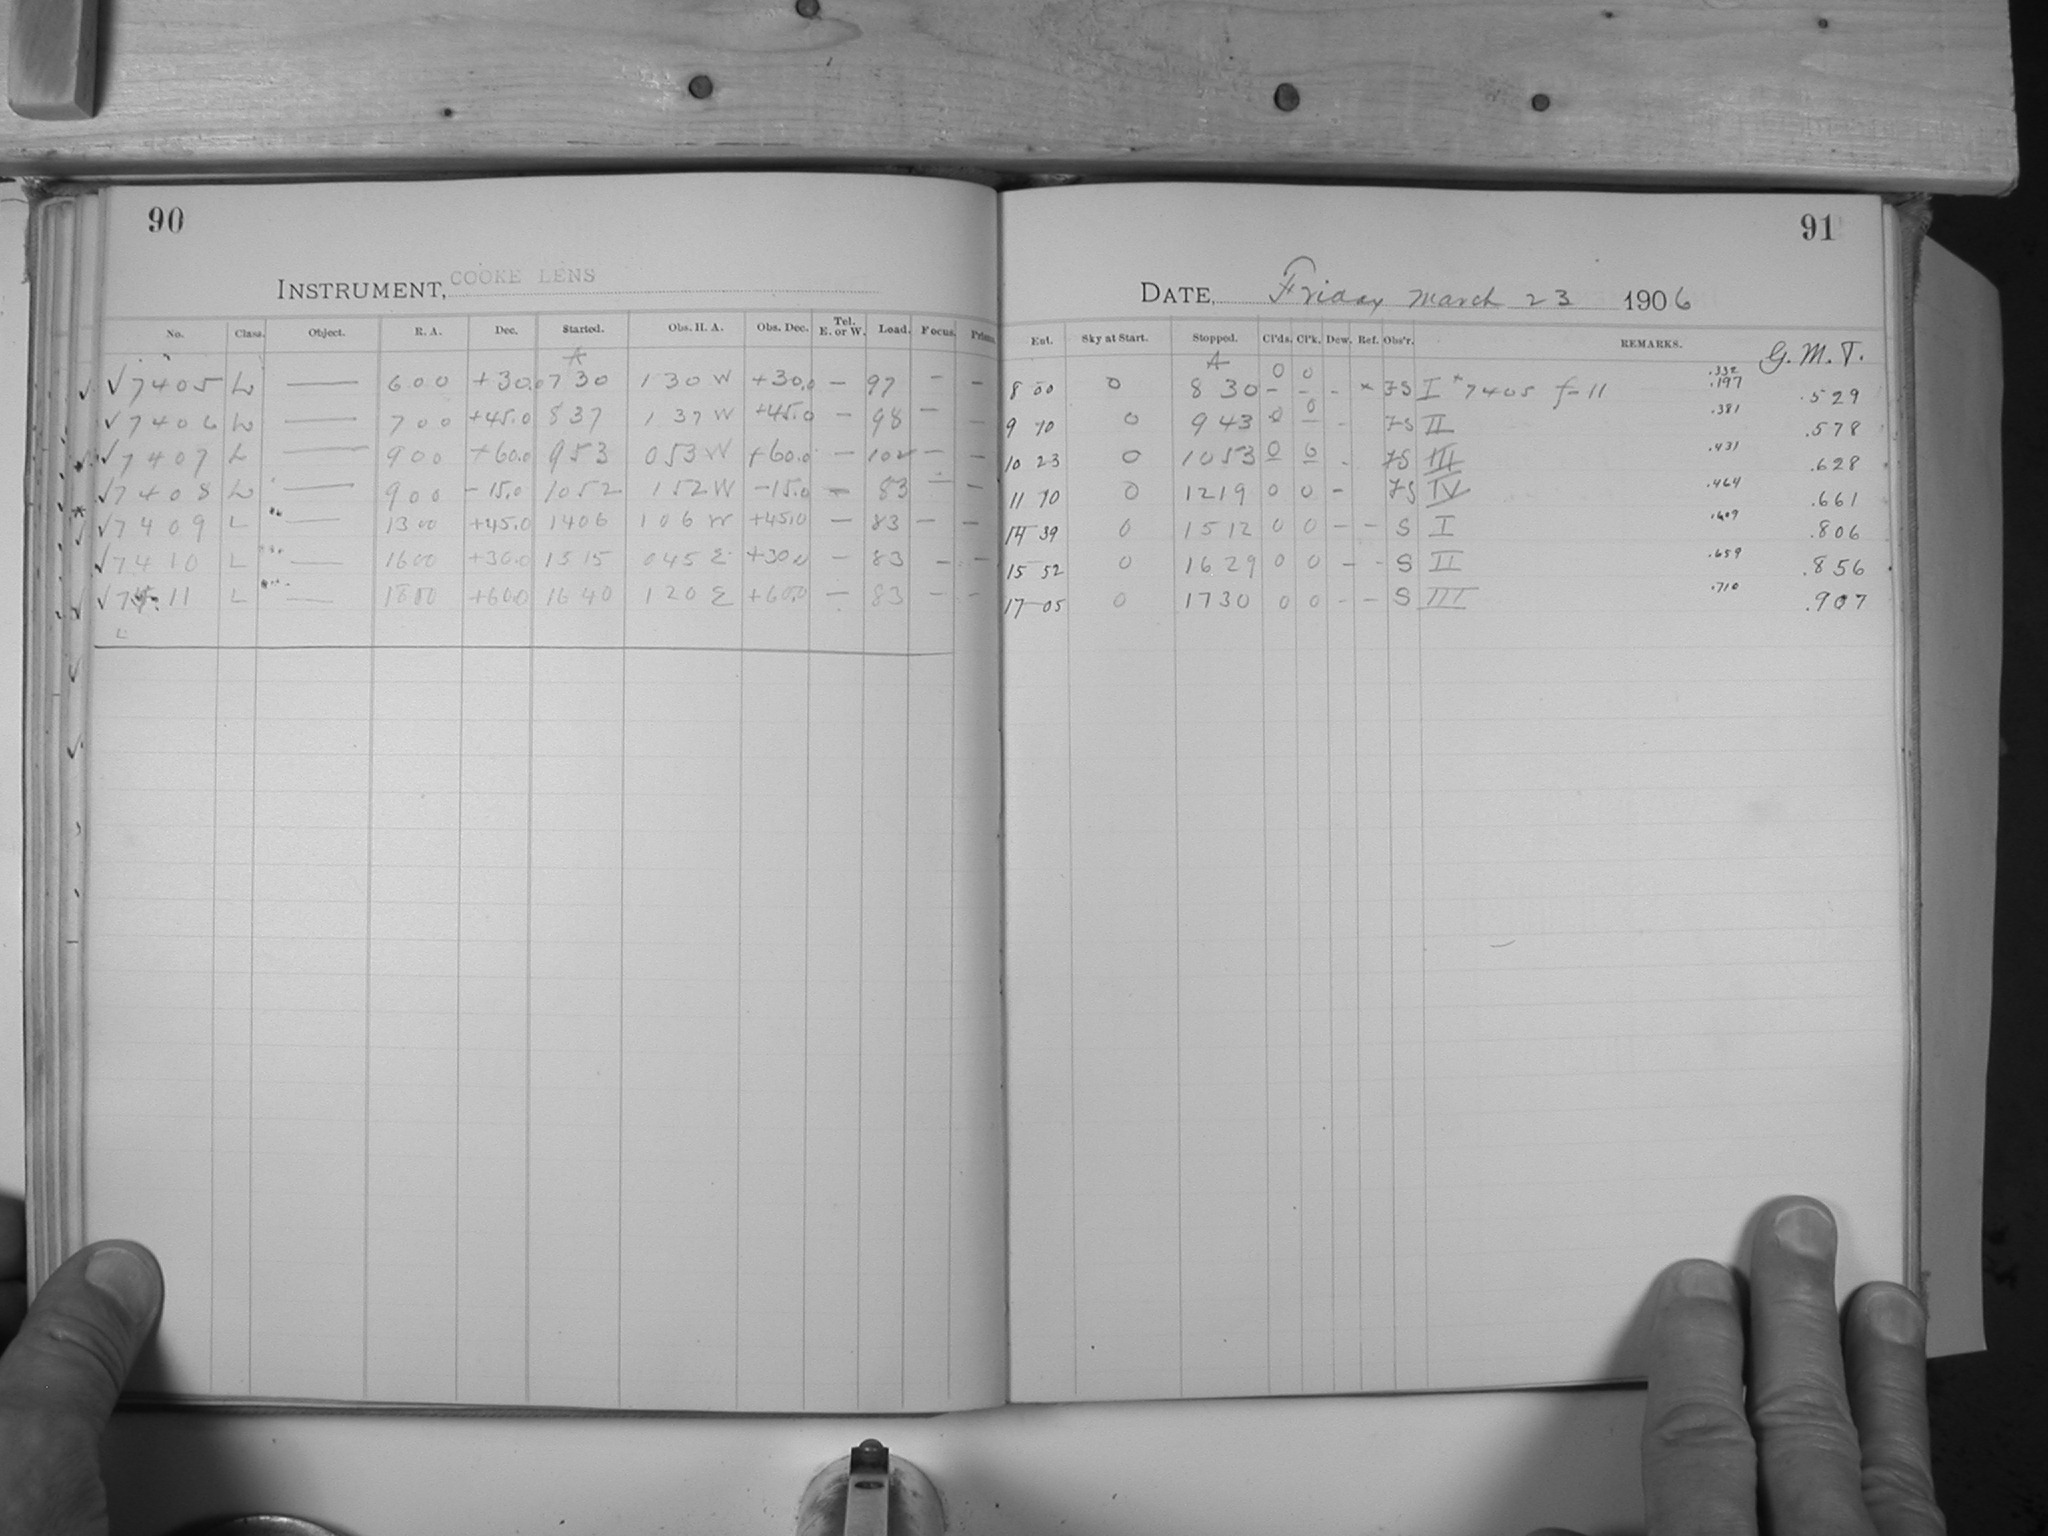 90
INSTRUMENT, COOKE LENS
No. Class. Object. R. A. Dec. Started. Obs. H. A. Obs. Dec. Tel. E. or W. Lead. Focus. Prisms.
A
√7405 L — 6 00 +30.0 7 30 1 30 W +30.0 — 97 — —
√7406 L — 7 00 +45.0 8 37 1 37 W +45.0 — 98 — —
√7407 L — 9 00 +60.0 9 53 0 53 W +60.0 — 102 — —
√7408 L — 9 00 -15.0 10 52 1 52 W -15.0 — 83 — —
√7409 L — 13 00 +45.0 14 06 1 06 W +45.0 — 83 — —
√7410 L — 16 00 +30.0 15 15 0 45 E +30.0 — 83 — —
√7411 L — 18 00 +60.0 16 40 1 20 E +60.0 — 83 — —
L
91
DATE, Friday March 23 1906
Ent. Sky at Start. Stopped. Cl'ds. Cl'k. Dew. Ref. Obs'r. REMARKS. G. M. T.
A 0 0 .332
8 00 0 8 30 - - - * FS I *7405 f-11 .197 .529
9 10 0 9 43 0 0 - FS II .381 .578
10 23 0 10 53 0 0 - FS III .431 .628
11 70 0 12 19 0 0 - FS IV .464 .661
14 39 0 15 12 0 0 - - S I .609 .806
15 52 0 16 29 0 0 - - S II .659 .856
17 05 0 17 30 0 0 - - S III .710 .907